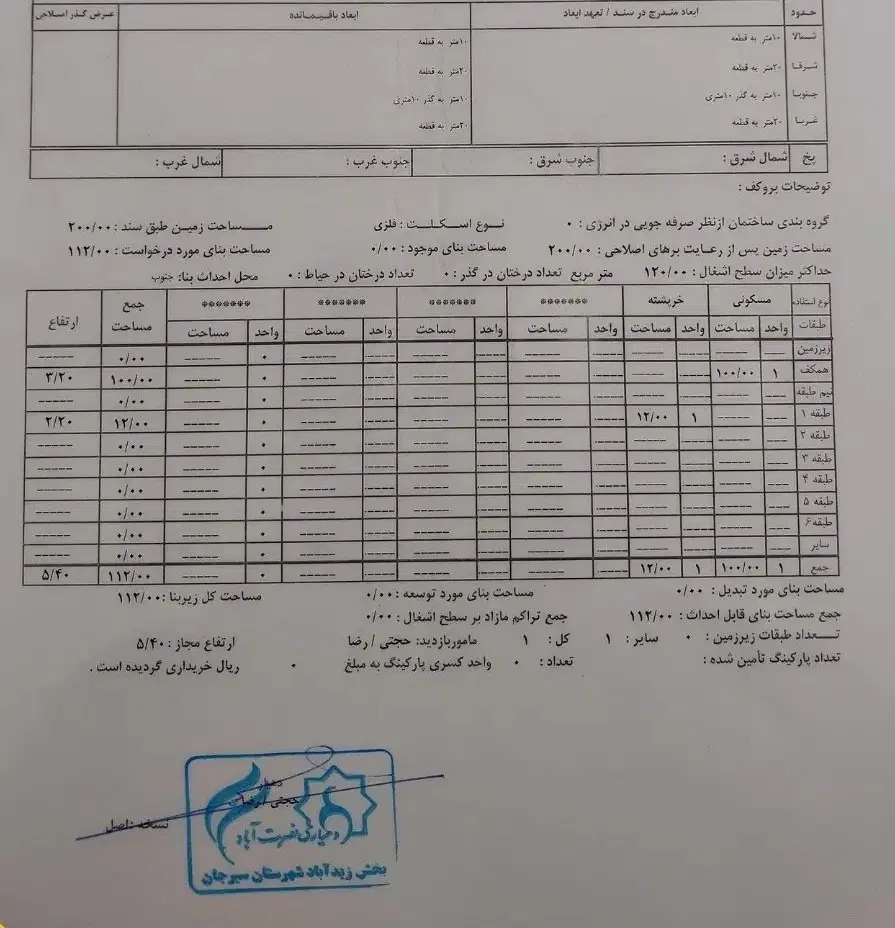 حدود ابعاد مندرج در سند / تعهد ابعاد ابعاد باقیمانده عرض گذر اصلاحی
شمالا ۱۰متر به قطعه ۱۰متر به قطعه
شرقا ۲۰متر به قطعه ۲۰متر به قطعه
جنوبا ۱۰متر به گذر ۱۰متری ۱۰متر به گذر ۱۰متری
غربا ۲۰متر به قطعه ۲۰متر به قطعه
پخ شمال شرق : جنوب شرق : جنوب غرب : شمال غرب :
توضیحات بروکف :
گروه بندی ساختمان ازنظر صرفه جویی در انرژی : ۰ نوع اسکلت : فلزی مساحت زمین طبق سند : ۲۰۰/۰۰
مساحت زمین پس از رعایت برهای اصلاحی : ۲۰۰/۰۰ مساحت بنای موجود : ۰/۰۰ مساحت بنای مورد درخواست : ۱۱۲/۰۰
حداکثر میزان سطح اشغال : ۱۲۰/۰۰ متر مربع تعداد درختان در گذر : ۰ تعداد درختان در حیاط : ۰ محل احداث بنا: جنوب
نوع استفاده مسکونی خرپشته ******* ******* ******* ******* جمع مساحت ارتفاع
طبقات واحد مساحت واحد مساحت واحد مساحت واحد مساحت واحد مساحت واحد مساحت
زیرزمین --- ----- --- ----- ----- ----- ----- ----- ----- ----- ۰ ----- ۰/۰۰ -----
همکف ۱ ۱۰۰/۰۰ --- ----- ----- ----- ----- ----- ----- ----- ۰ ----- ۱۰۰/۰۰ ۳/۲۰
نیم طبقه --- ----- --- ----- ----- ----- ----- ----- ----- ----- ۰ ----- ۰/۰۰ -----
طبقه ۱ --- ----- ۱ ۱۲/۰۰ ----- ----- ----- ----- ----- ----- ۰ ----- ۱۲/۰۰ ۲/۲۰
طبقه ۲ --- ----- --- ----- ----- ----- ----- ----- ----- ----- ۰ ----- ۰/۰۰ -----
طبقه ۳ --- ----- --- ----- ----- ----- ----- ----- ----- ----- ۰ ----- ۰/۰۰ -----
طبقه ۴ --- ----- --- ----- ----- ----- ----- ----- ----- ----- ۰ ----- ۰/۰۰ -----
طبقه ۵ --- ----- --- ----- ----- ----- ----- ----- ----- ----- ۰ ----- ۰/۰۰ -----
طبقه ۶ --- ----- --- ----- ----- ----- ----- ----- ----- ----- ۰ ----- ۰/۰۰ -----
سایر --- ----- --- ----- ----- ----- ----- ----- ----- ----- ۰ ----- ۰/۰۰ -----
جمع ۱ ۱۰۰/۰۰ ۱ ۱۲/۰۰ ----- ----- ----- ----- ----- ----- ۰ ----- ۱۱۲/۰۰ ۵/۴۰
مساحت بنای مورد تبدیل : ۰/۰۰ مساحت بنای مورد توسعه : ۰/۰۰ مساحت کل زیربنا : ۱۱۲/۰۰
جمع مساحت بنای قابل احداث : ۱۱۲/۰۰ جمع تراکم مازاد بر سطح اشغال : ۰/۰۰
تعداد طبقات زیرزمین : ۰ سایر : ۱ کل : ۱ ماموربازدید: حجتی / رضا ارتفاع مجاز : ۵/۴۰
تعداد پارکینگ تأمین شده : تعداد : ۰ واحد کسری پارکینگ به مبلغ ۰ ریال خریداری گردیده است .
دهیار
حجتی / رضا
نسخه :اصل
دهیاری نصرت آباد
بخش زیدآباد شهرستان سیرجان